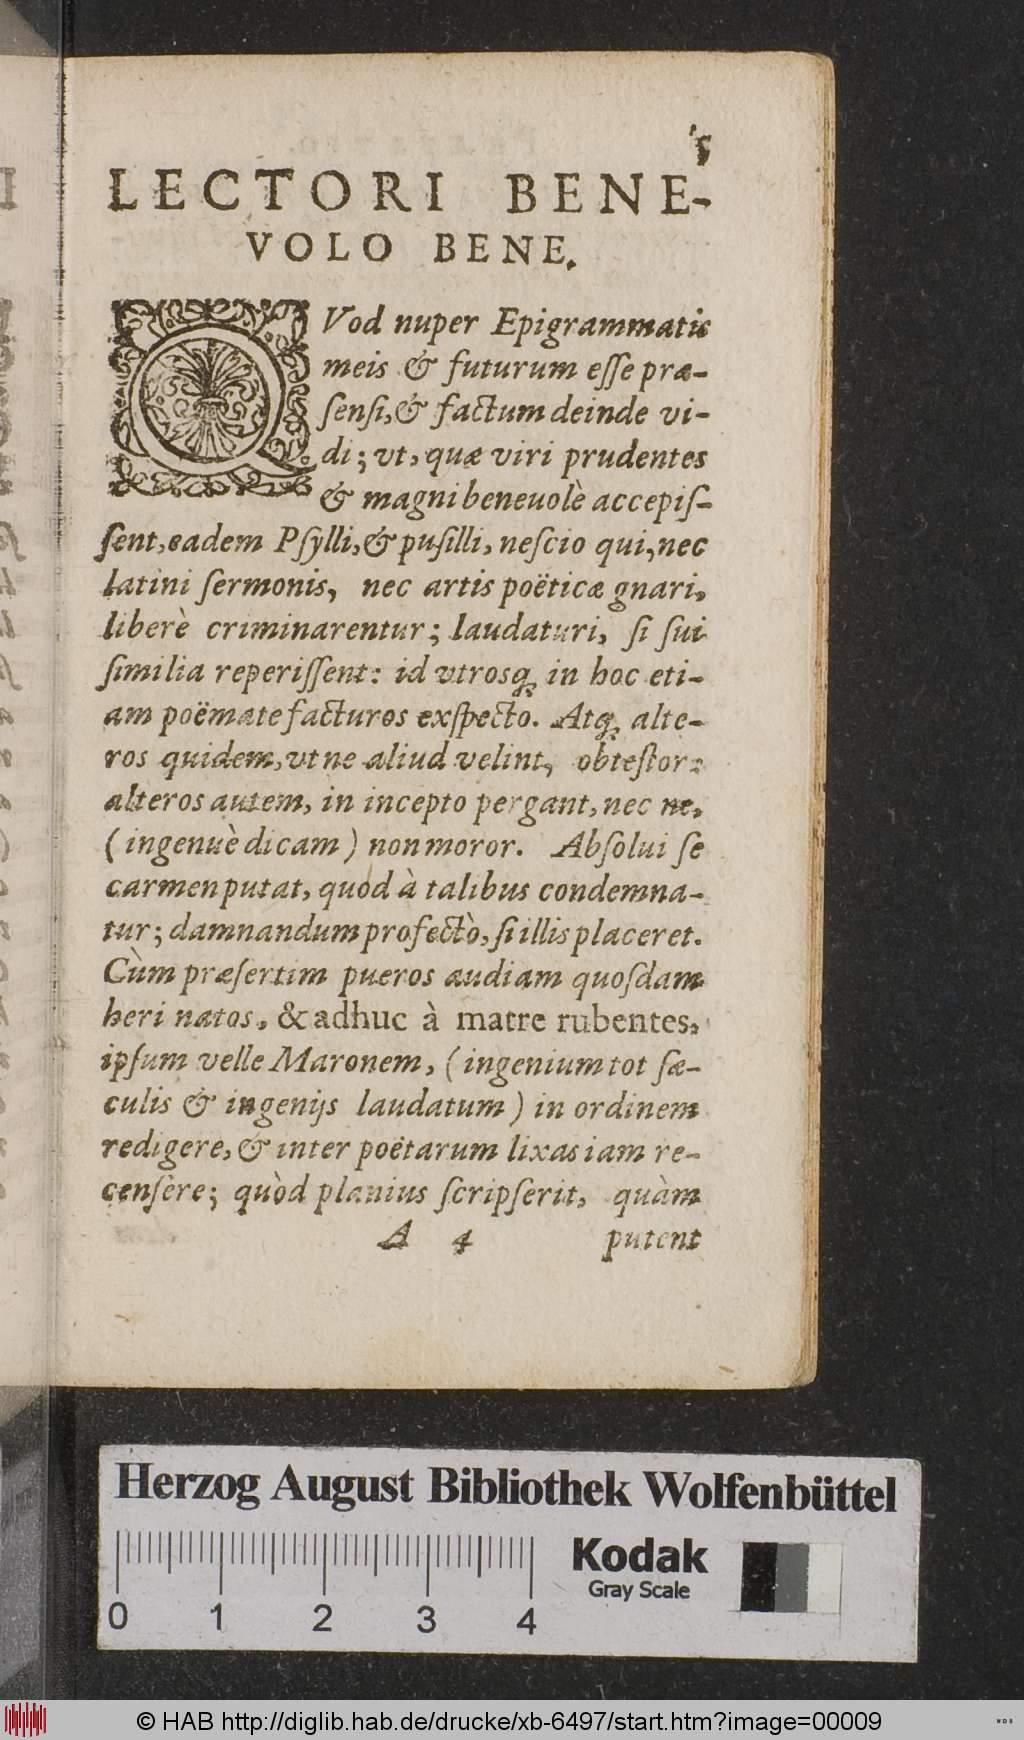 5
LECTORI BENE-
VOLO BENE.
QVod nuper Epigrammatis
meis & futurum eſſe præ-
ſenſi, & factum deinde vi-
di; vt, quæ viri prudentes
& magni beneuolè accepiſ-
ſent, eadem Pſylli, & puſilli, neſcio qui, nec
latini ſermonis, nec artis poëticæ gnari,
liberè criminarentur; laudaturi, ſi ſui
ſimilia reperiſſent: id vtrosq; in hoc eti-
am poëmate facturos exſpecto. Atq; alte-
ros quidem, vt ne aliud velint, obteſtor:
alteros autem, in incepto pergant, nec ne,
(ingenuè dicam) non moror. Abſolui ſe
carmen putat, quod à talibus condemna-
tur; damnandum profectò, ſi illis placeret.
Cùm præſertim pueros audiam quoſdam
heri natos, & adhuc à matre rubentes,
ipſum velle Maronem, (ingenium tot ſæ-
culis & ingenijs laudatum) in ordinem
redigere, & inter poëtarum lixas iam re-
cenſere; quòd planius ſcripſerit, quàm
A 4 putent
Herzog August Bibliothek Wolfenbüttel
Kodak
Gray Scale
0 1 2 3 4
© HAB http://diglib.hab.de/drucke/xb-6497/start.htm?image=00009